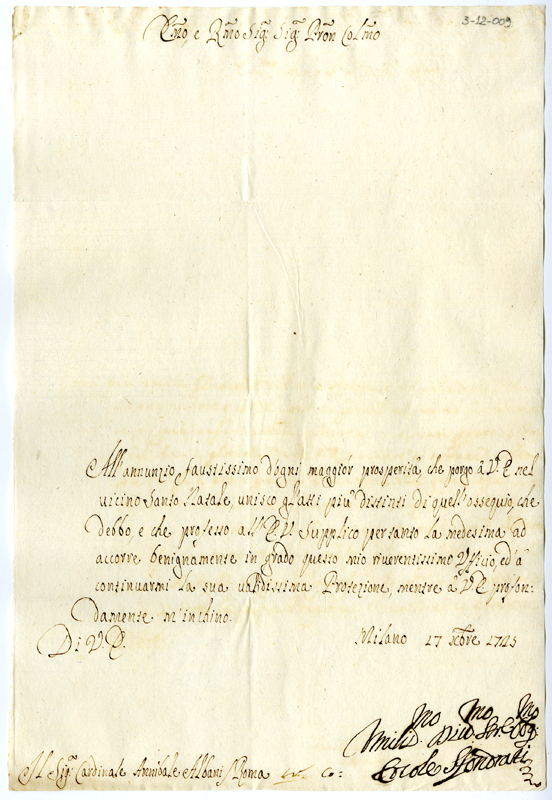 3-12-009
Em̃o, e Rm̃o Sig.r Sig.r Pron Colm̃o
All'annunzio faustissimo d'ogni maggior prosperità, che porgo à V. E. nel
vicino Santo Natale, unisco gl'atti più distinti di quell'ossequio, che
debbo, e che professo all'E. V. Supplico pertanto la medesima ad
accorre benignamente in grado questo mio riverentissimo Ufficio, ed à
continuarmi la sua validissima Protezione, mentre à V. E. profon:
damente m'inchino.
Di V. E.
Milano 17 Xbre 1725
Umilis.mo Div.mo Ser.e Obg.mo
Ercole Sfondrati
Al Sig.r Cardinale Annibale Albani Roma